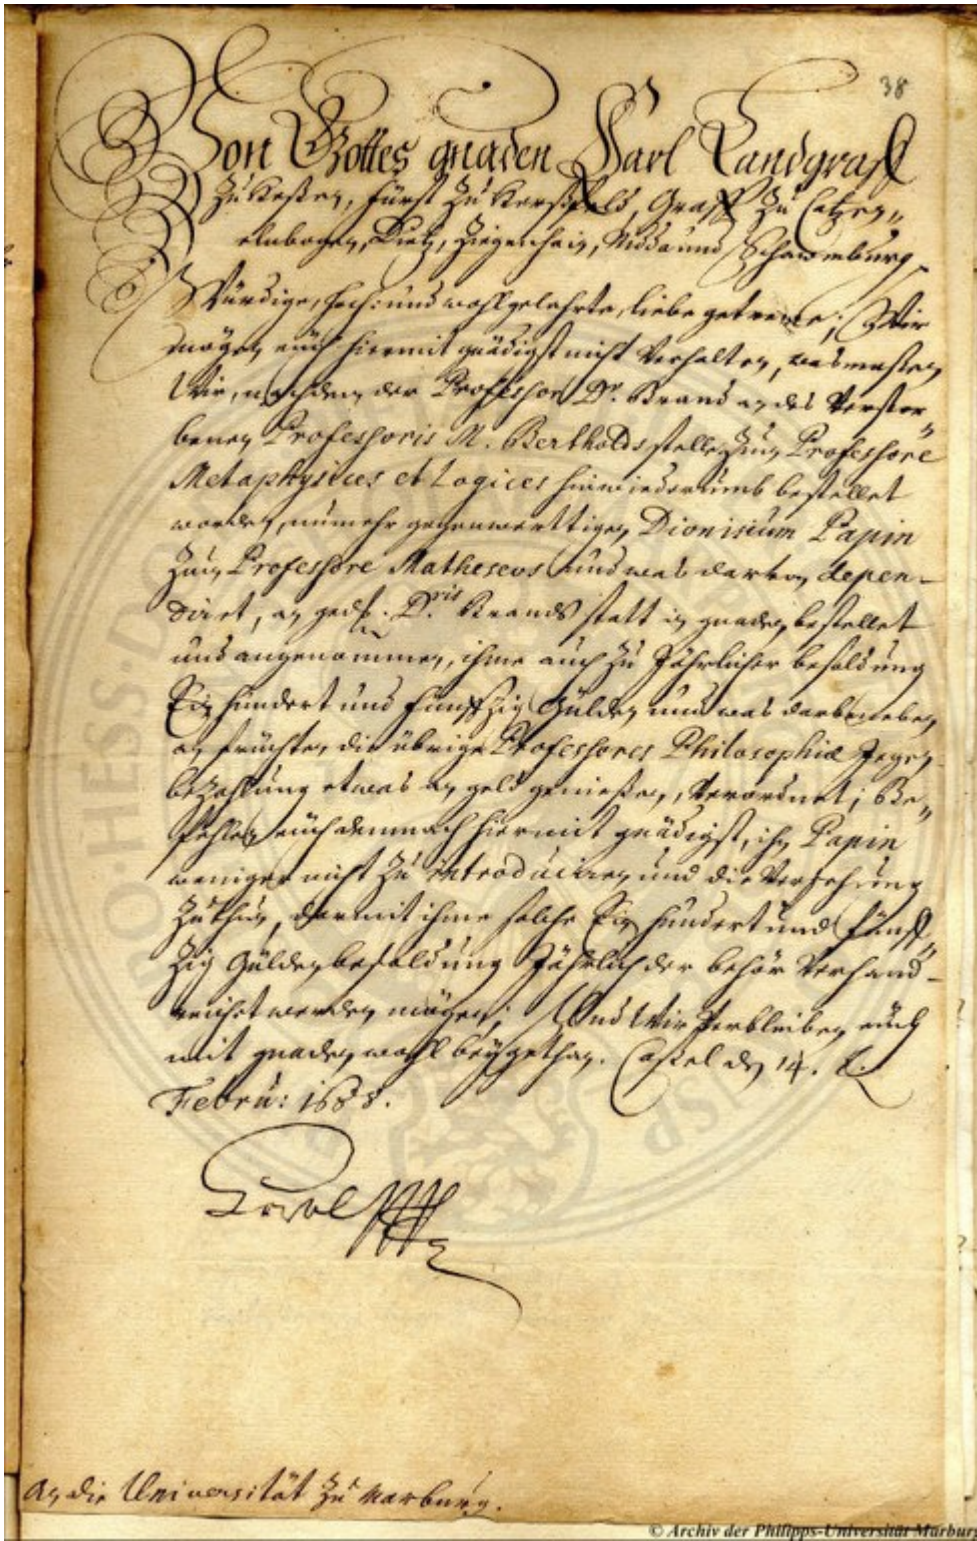 38
Von Gottes gnaden Karl Landgraff
Zu Heßen, Fürst Zu Herßfeld, Graff Zu Catzen„
elnbogen, Dietz, Ziegenhain, Nidda und Schaumburg
Würdige, hoch: und wohlgelahrte, liebe getreue; Wir
mögen euch hiermit gnädigst nicht Verhalten, was maßen
Wir, nachdem der Professor Dr. Brand an des Verstor„
benen Professoris M. Bertholds stelle Zum Professore
Metaphysices et Logices hinwiederumb bestellet
worden, nunmehr gegenwerttigen Dionisium Papin
Zum Professore Matheseos und was darvon depen-
diret, an gedh. D.ris Brands statt in gnaden bestellet
und angenommen, ihme auch Zu Jährlicher besoldung
Ein hundert und funffzig Gulden und was darbeneben
an früchten die übrige Professores Philosophiæ gegen
bezahlung etwas an geld genießen, Verordnet; Be„
fehlen euch demnach hiermit gnädigst, ihn Papin
weniger nicht Zu introduciren und die Versehung
Zuthun, darmit ihme solche Ein hundert und funff„
zig Gulden besoldung Jährlich der behör Verhand-
reicht werden mögen; Und Wir Verbleiben euch
mit gnaden wohl beygethan. Caßel den 14. t.
Febru: 1688.
Carl
An die Universität Zu Marburg.
© Archiv der Philipps-Universität Marburg